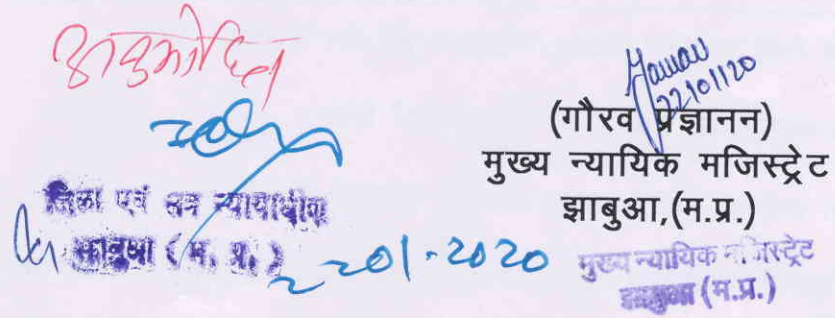 अनुमोदित
जिला एवं सत्र न्यायाधीश
झाबुआ (म. प्र.)
22-01-2020
Gaurav
22/01/20
(गौरव प्रज्ञानन)
मुख्य न्यायिक मजिस्ट्रेट
झाबुआ,(म.प्र.)
मुख्य न्यायिक मजिस्ट्रेट
झाबुआ (म.प्र.)